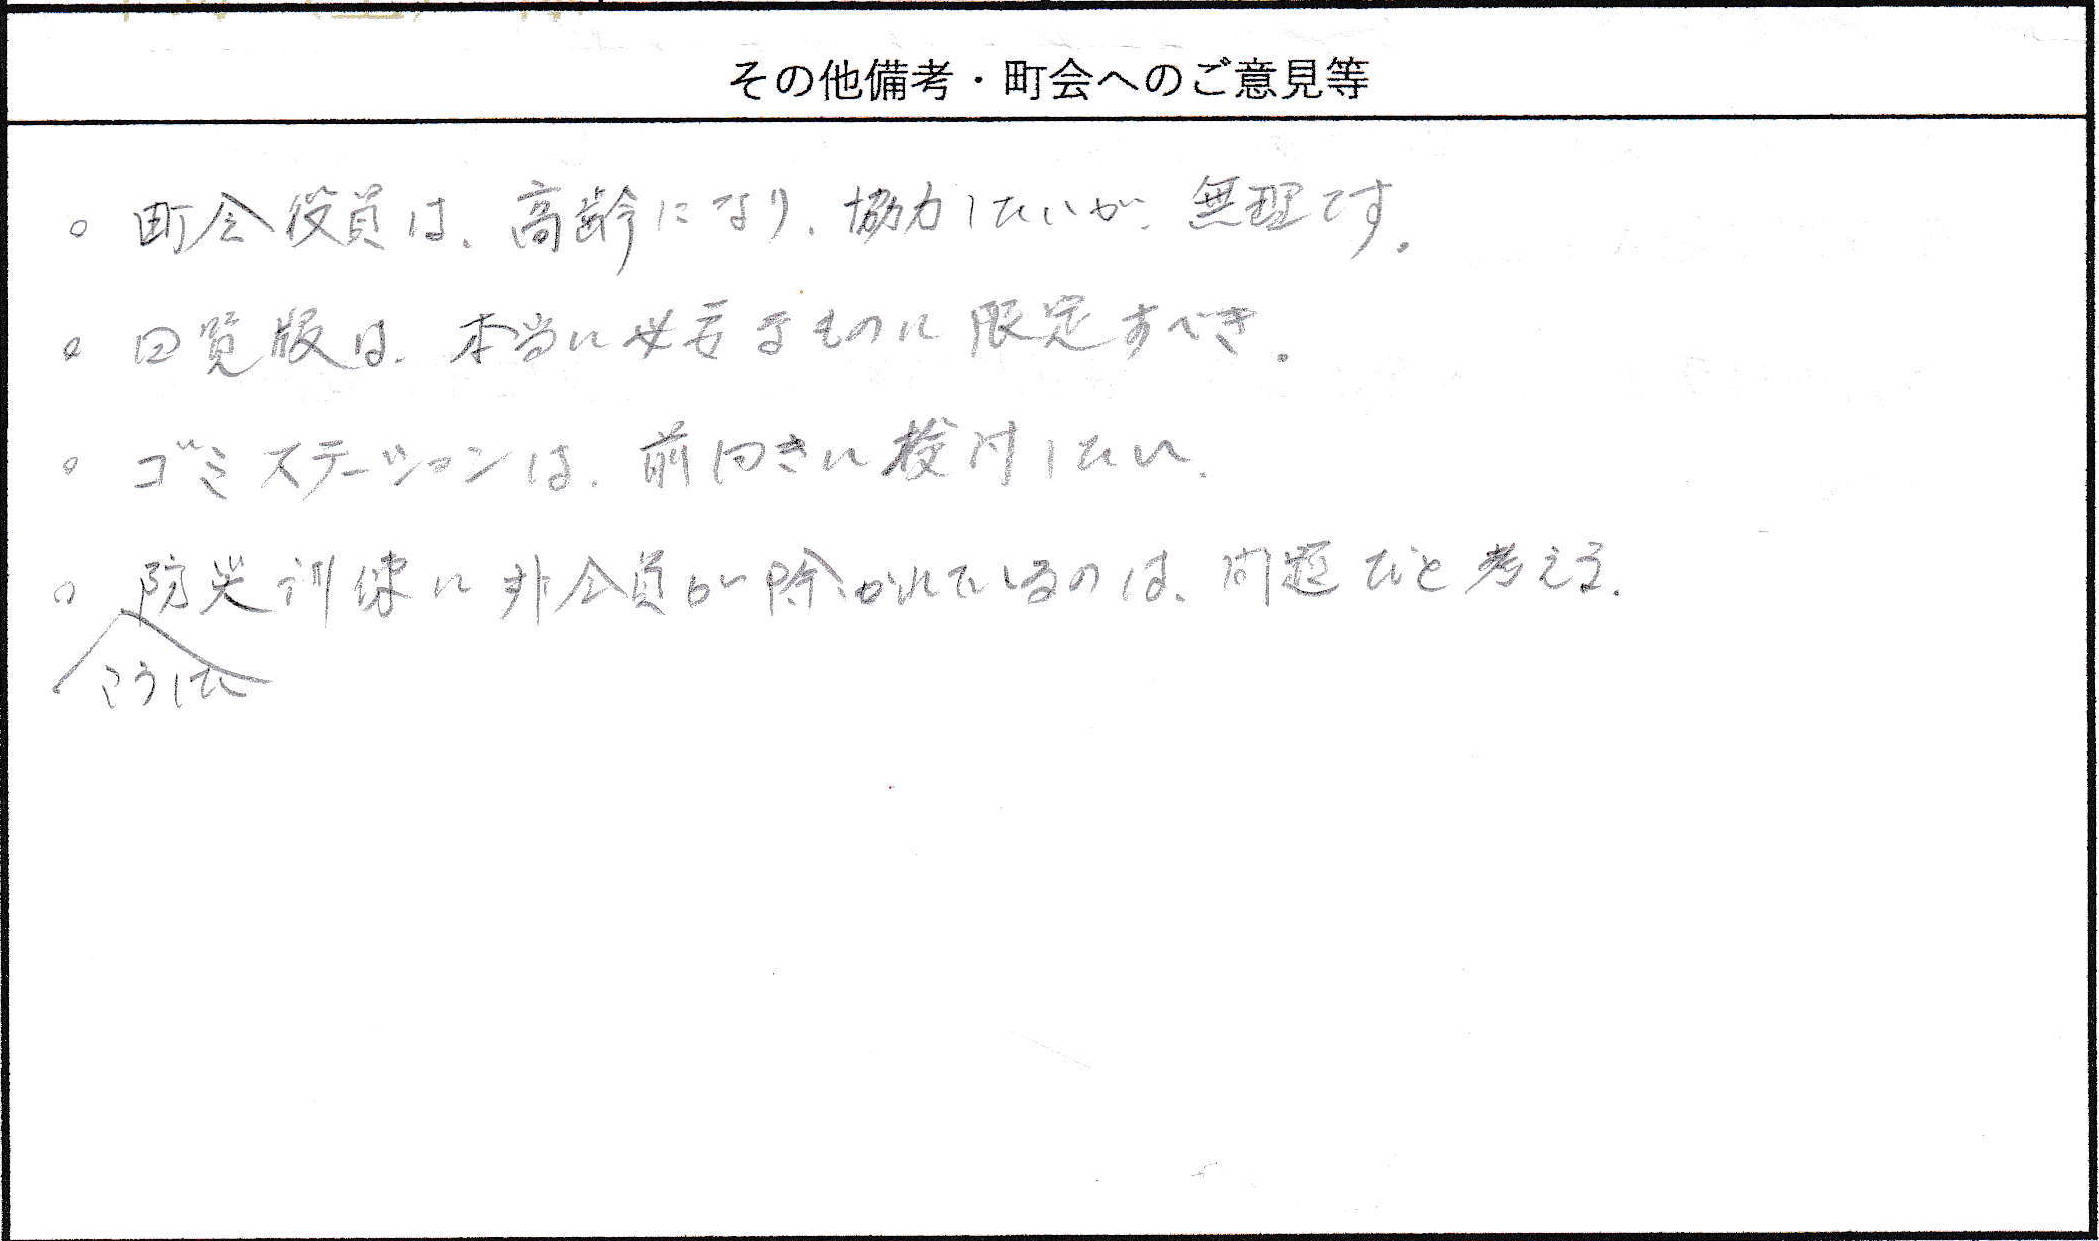 その他備考・町会へのご意見等
○ 町会役員は、高齢になり、協力したいが、無理です。
○ 回覧版は、本当に必要なものに限定すべき。
○ ゴミステーションは、前向きに検討したい。
○ 防災訓練に非会員が除かれているのは、問題だと考える。
こうした